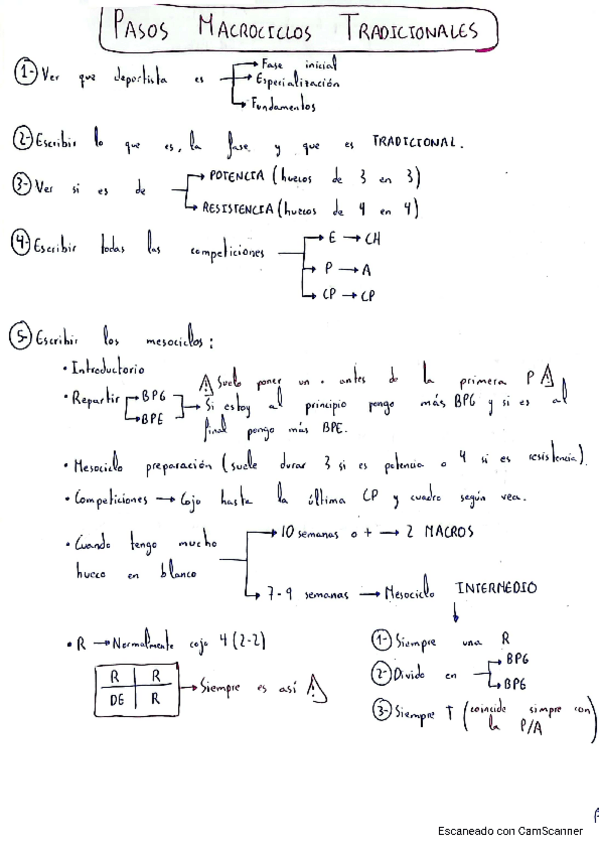 PASOS MACROCICLOS TRADICIONALES
1- Ver que deportista es → Fase inicial
→ Especialización
→ Fundamentos
2- Escribir lo que es, la fase y que es TRADICIONAL.
3- Ver si es de → POTENCIA (huecos de 3 en 3)
→ RESISTENCIA (huecos de 4 en 4)
4- Escribir todas las competiciones → E → CH
→ P → A
→ CP → CP
5- Escribir los mesociclos:
• Introductorio
• Repartir → BPG
→ BPE
⚠ Suelo poner un . antes de la primera P ⚠
→ Si estoy al principio pongo más BPG y si es al
final pongo más BPE.
• Mesociclo preparación (suele durar 3 si es potencia o 4 si es resistencia).
• Competiciones → Cojo hasta la última CP y cuadro según vea.
• Cuando tengo mucho
hueco en blanco
→ 10 semanas o + → 2 MACROS
→ 7-9 semanas → Mesociclo INTERMEDIO
• R → Normalmente cojo 4 (2-2)
R R
DE R
→ Siempre es así ⚠
1- Siempre una R
2- Divido en → BPG
→ BPE
3- Siempre T (coincide siempre con
la P/A)
Escaneado con CamScanner